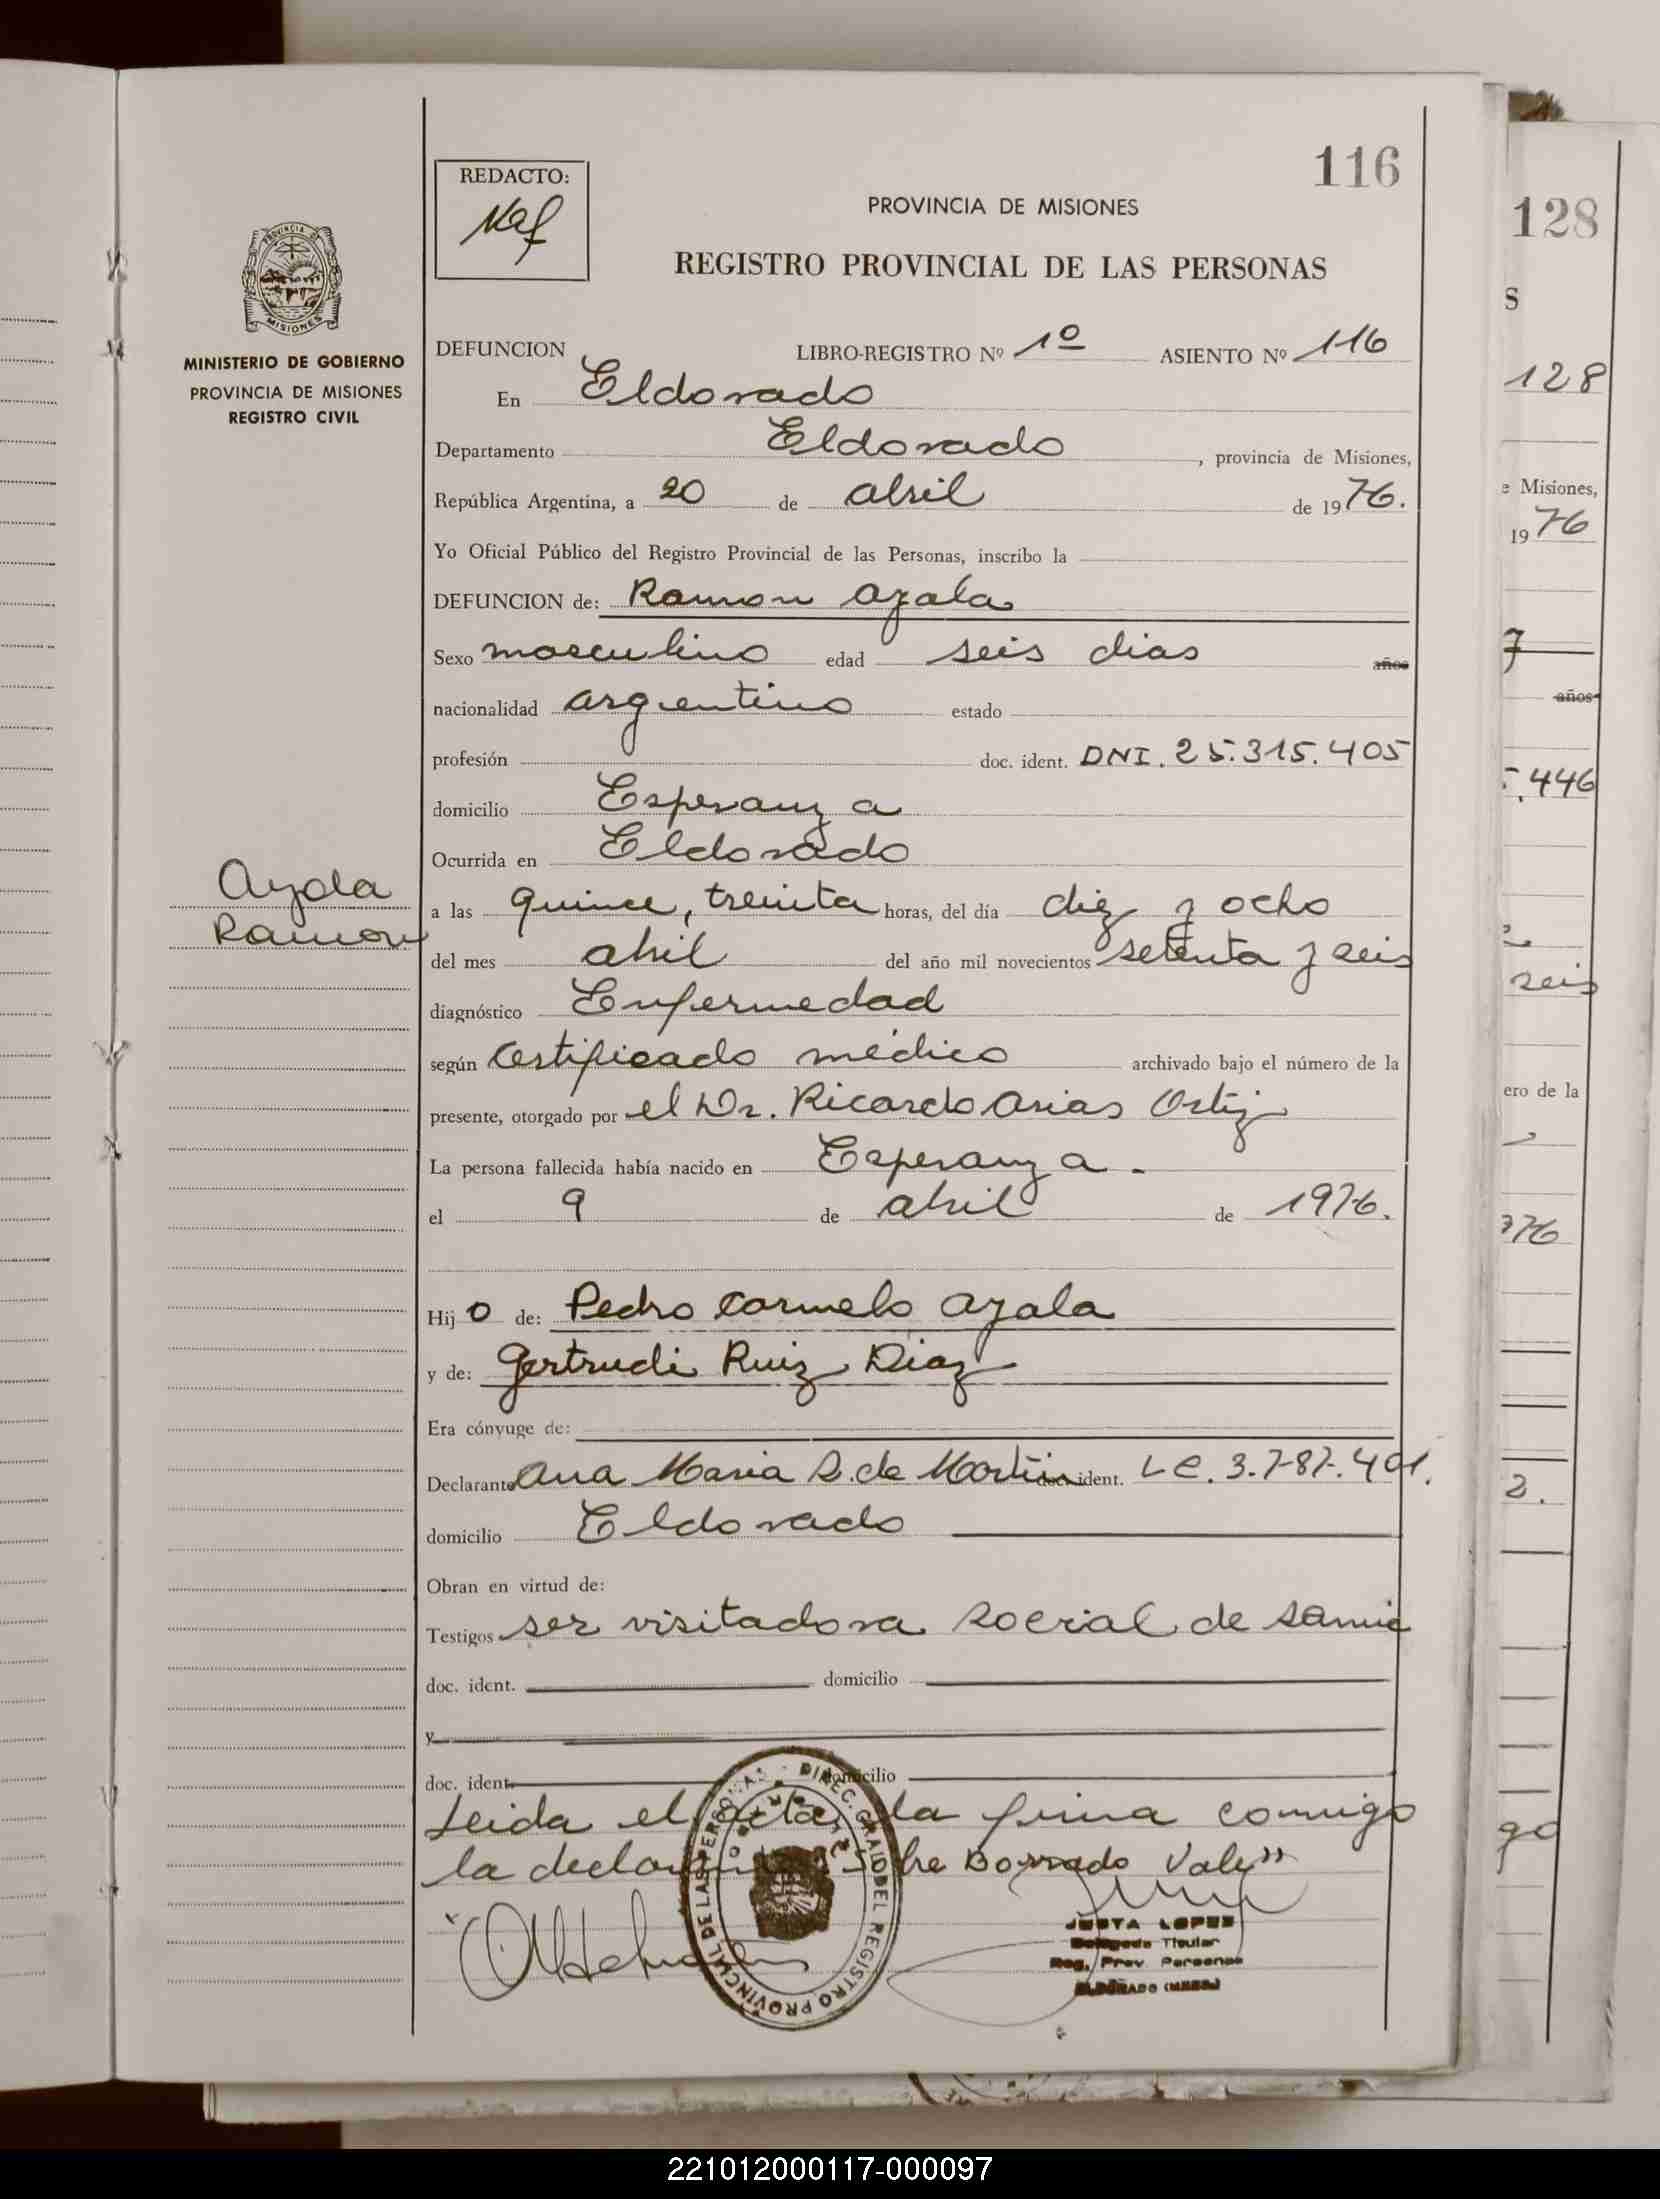 116
REDACTO:
PROVINCIA DE MISIONES
REGISTRO PROVINCIAL DE LAS PERSONAS
PROVINCIA DE
MISIONES
MINISTERIO DE GOBIERNO
PROVINCIA DE MISIONES
REGISTRO CIVIL
DEFUNCION LIBRO-REGISTRO Nº 1º ASIENTO Nº 116
En Eldorado
Departamento Eldorado, provincia de Misiones,
República Argentina, a 20 de abril de 1976.
Yo Oficial Público del Registro Provincial de las Personas, inscribo la
DEFUNCION de: Ramon Ayala
Sexo masculino edad seis dias años
nacionalidad argentino estado
profesión doc. ident. DNI. 25.315.405
domicilio Esperanza
Ocurrida en Eldorado
a las quince, treinta horas, del día diez y ocho
del mes abril del año mil novecientos setenta y seis
diagnóstico Enfermedad
según Certificado médico archivado bajo el número de la
presente, otorgado por el Dr. Ricardo Arias Ortiz
La persona fallecida había nacido en Esperanza.
el 9 de abril de 1976.
Hijo de: Pedro Carmelo Ayala
y de: Gertrudi Ruiz Diaz
Era cónyuge de:
Declarante Ana Maria R. de Martin doc. ident. LC. 3.787.401.
domicilio Eldorado
Obran en virtud de:
Testigos ser visitadora social de Samic
doc. ident. domicilio
y
doc. ident. domicilio
Leida el acta, la firma conmigo
la declarante Borrado Vale"
Ayala
Ramon
DIREC. GRAL DEL REGISTRO PROVINCIAL DE LAS PERSONAS
JUSTA LOPEZ
Delegada Titular
Reg. Prov. Personas
ELDORADO (MNES.)
128
S
128
e Misiones,
1976
7
años
.446
seis
ero de la
976
2.
go
221012000117-000097